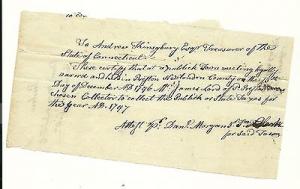 To Andrew Kingsbury Esqr Treasurer of the
State of Connecticut
These certify that at a publick Town meeting legally
warned and held in Preston New London County on the
Day of December AD 1796 Mr James Cord of Preston was
chosen Collector to collect the Publick or State Taxes for
the Year AD 1797
Attest pr Danl Morgan Tn Clerk
for Said Town